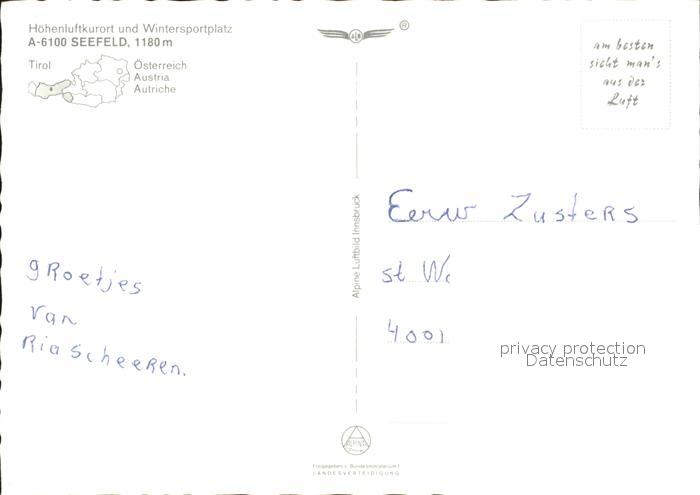 Höhenluftkurort und Wintersportplatz
A-6100 SEEFELD, 1180 m
Tirol
Österreich
Austria
Autriche
®
am besten
sieht man's
aus der
Luft
Alpine Luftbild Innsbruck
Eerw Zusters
st We
4001
groetjes
van
Ria Scheeren.
privacy protection
Datenschutz
Freigegeben v. Bundesministerium f.
LANDESVERTEIDIGUNG